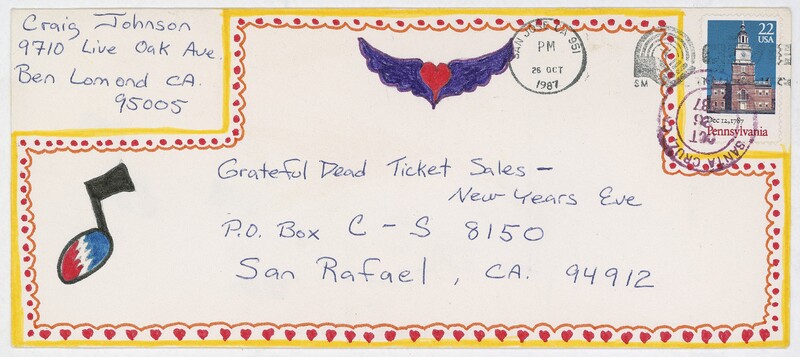 Craig Johnson
9710 Live Oak Ave.
Ben Lomond CA.
95005
SAN JOSE CA 951
PM
26 OCT
1987
SM
22
USA
Dec 12, 1787
Pennsylvania
SANTA CRUZ
OCT
26
87
Grateful Dead Ticket Sales –
New Years Eve
P.O. Box C – S 8150
San Rafael, CA. 94912